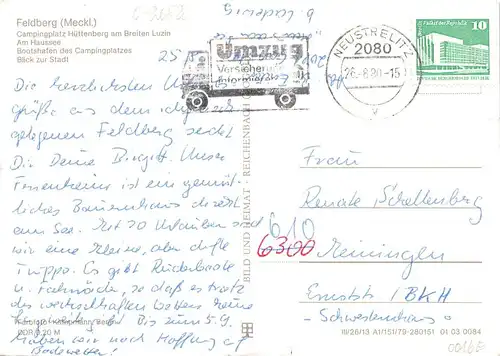 Feldberg (Meckl.)
Campingplatz Hüttenberg am Breiten Luzin
Am Haussee
Bootshafen des Campingplatzes
Blick zur Stadt
Umzug
Versicherung
informieren
NEUSTRELITZ
2080
26.-8.80-15
v
10
Die herzlichsten Urlaubs-
grüße aus dem idyllisch
gelegenen Feldberg sendet
Dir Deine Birgitt. Unser
Ferienheim ist ein gemüt-
liches Bauernhaus direkt
am See. Mit 20 Urlaubern sind
wir eine kleine, aber dufte
Truppe. Es gibt Ruderboote
u. Fahrräder, so daß es trotz
des wechselhaften Wetters keine
Bis zum 5.9.
haben wir noch Hoffnung auf
Badewetter!
Frau
Renate Schellenberg
610
6300 Meiningen
Ernststr. 1 BKH
- Schwesternhaus -
BILD UND HEIMAT · REICHENBACH
III/26/13 A1/151/79-280151 01 03 0084